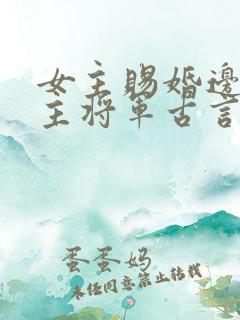 女主赐婚边
主将军古言
蛋蛋妈
未经同意禁止转载